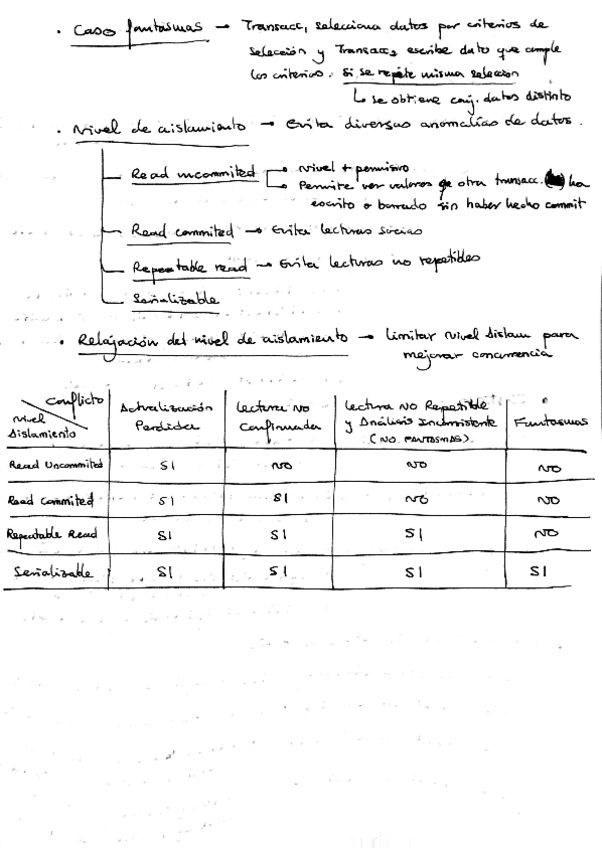 · Caso fantasmas → Transacc₁ selecciona datos por criterios de
selección y Transacc₂ escribe dato que cumple
los criterios. Si se repite misma selección
↳ se obtiene conj. datos distinto
· Nivel de aislamiento → Evita diversas anomalías de datos.
Read uncommited → Nivel + permisivo
→ Permite ver valores q otra transacc. ha
escrito o borrado sin haber hecho commit
Read commited → Evita lecturas sucias
Repeatable read → Evita lecturas no repetibles
Serializable
· Relajación del nivel de aislamiento → Limitar nivel aislam para
mejorar concurrencia
Conflicto
Nivel Aislamiento
Actualización Perdida
Lectura No Confirmada
Lectura No Repetible y Análisis Inconsistente (NO FANTASMAS)
Fantasmas
Read Uncommited SI NO NO NO
Read Commited SI SI NO NO
Repeatable Read SI SI SI NO
Serializable SI SI SI SI